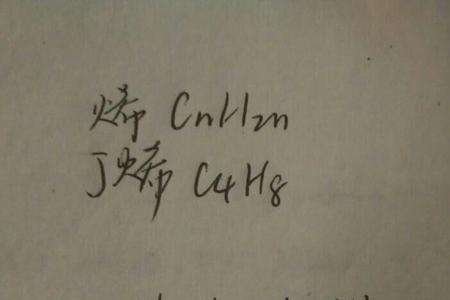 烯 CnH2n
丁烯 C4H8